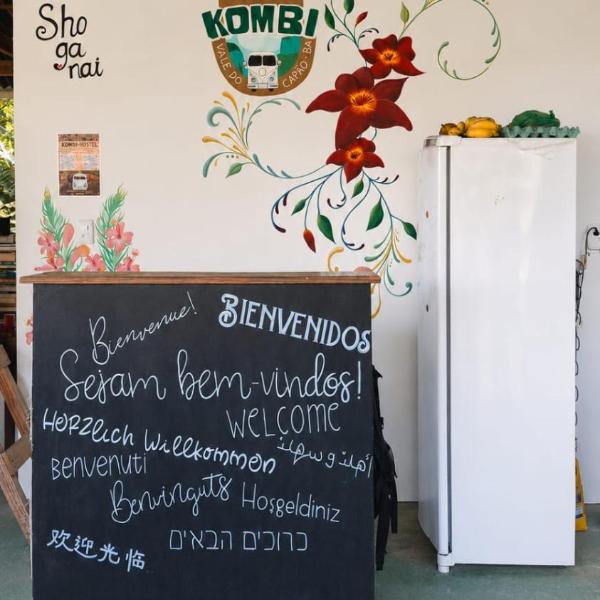 Sho
ga
nai
KOMBI
VALE DO CAPÃO - BA
KOMBI-HOSTEL
Bienvenue!
BIENVENIDOS
Sejam bem-vindos!
WELCOME
HERZlich Willkommen
أهلاً وسهلاً
BENVENUTI
Benvinguts
Hoşgeldiniz
欢迎光临
ברוכים הבאים